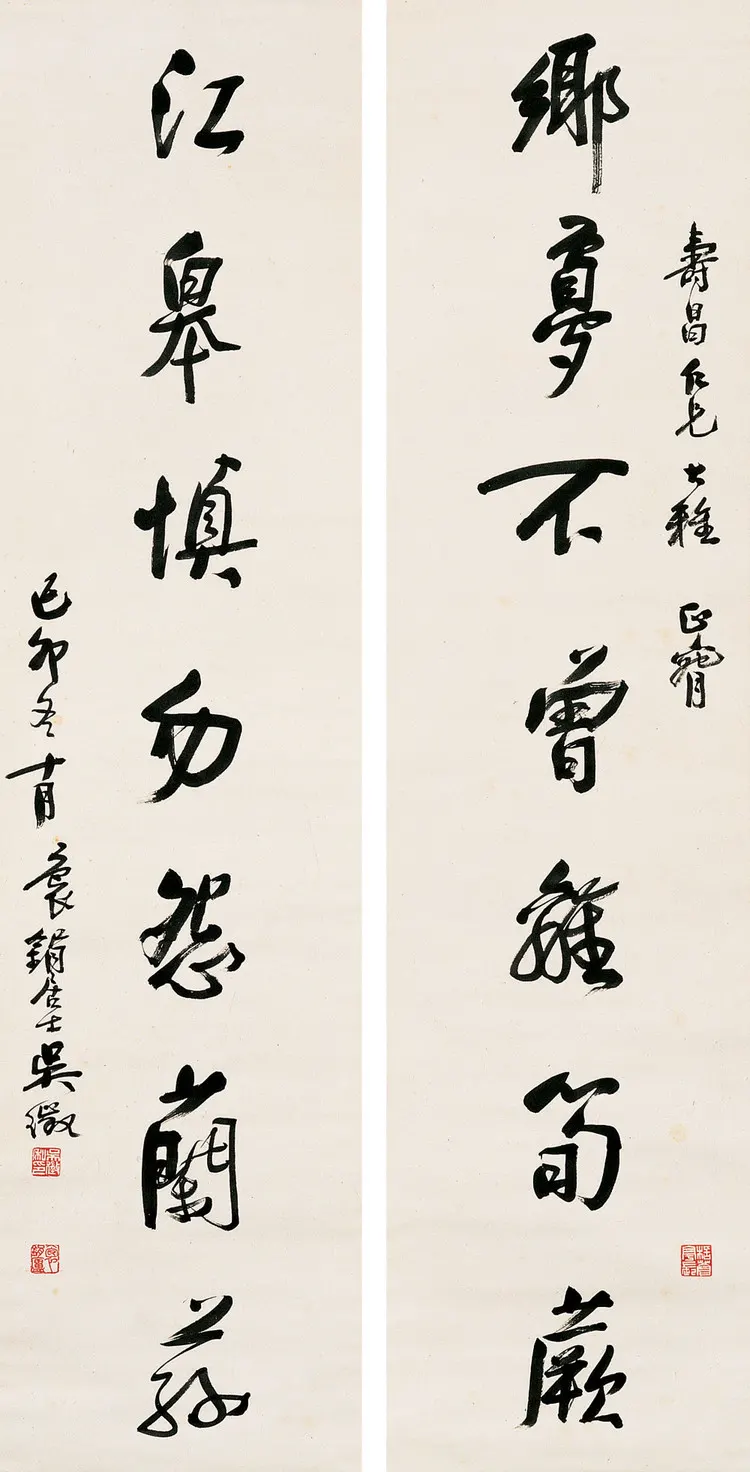 壽昌仁兄大雅 正腕
鄉夢不曾離筍蕨
江皐慎勿怨蘭蓀
己卯冬十月 袌鋗居士吳徵